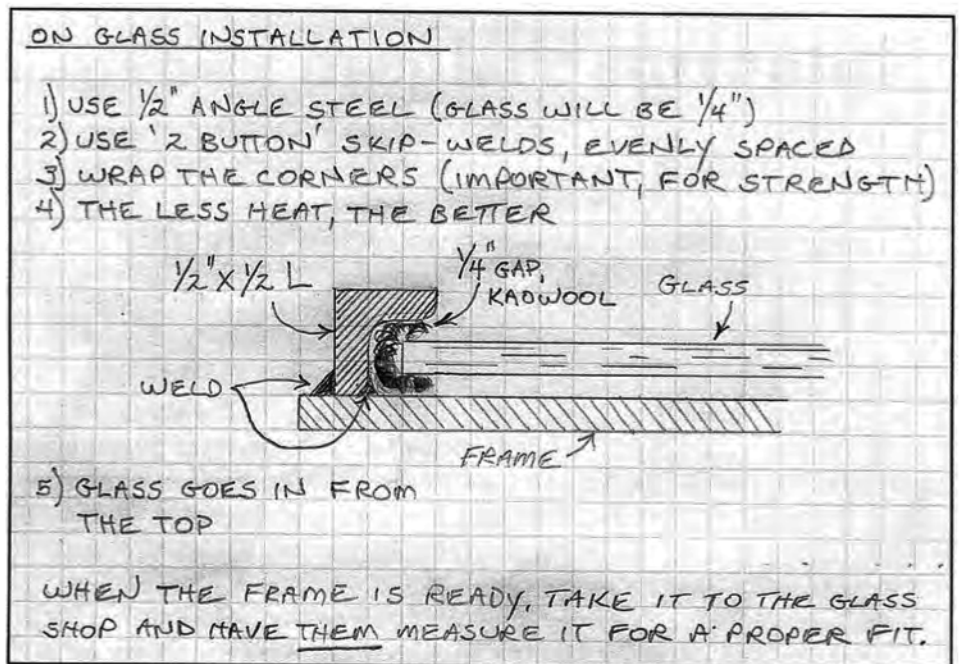 ON GLASS INSTALLATION
1) USE 1/2" ANGLE STEEL (GLASS WILL BE 1/4")
2) USE '2 BUTTON' SKIP-WELDS, EVENLY SPACED
3) WRAP THE CORNERS (IMPORTANT, FOR STRENGTH)
4) THE LESS HEAT, THE BETTER
1/2" X 1/2 L
1/4" GAP,
KAOWOOL
GLASS
WELD
FRAME
5) GLASS GOES IN FROM
THE TOP
WHEN THE FRAME IS READY, TAKE IT TO THE GLASS
SHOP AND HAVE THEM MEASURE IT FOR A PROPER FIT.